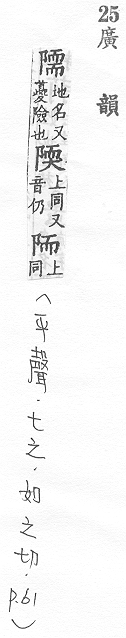 25 廣韻
隭地名又憂險也陾上同又音仍陑上同
(平聲．七之．如之切．p.61)